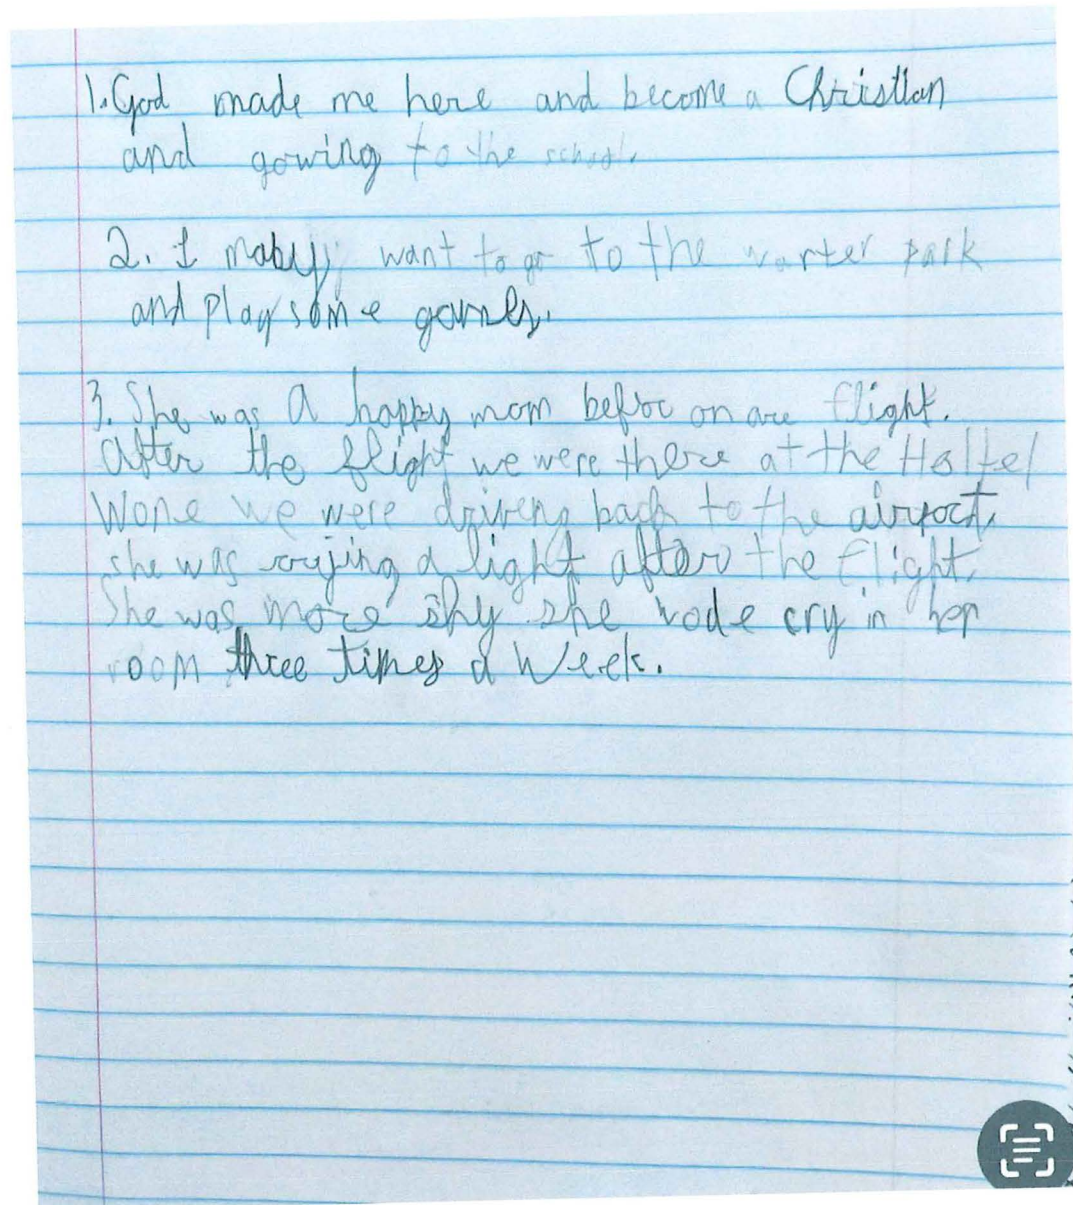 1. God made me here and become a Christian
and gowing to the school.
2. I mabuy want to go to the warter park
and play some games.
3. She was A happy mom befor on are flight.
After the flight we were there at the Holtel
Wone we were driveng back to the airport,
she was cryjing a light after the flight.
She was more shy she wode cry in her
room three times a week.